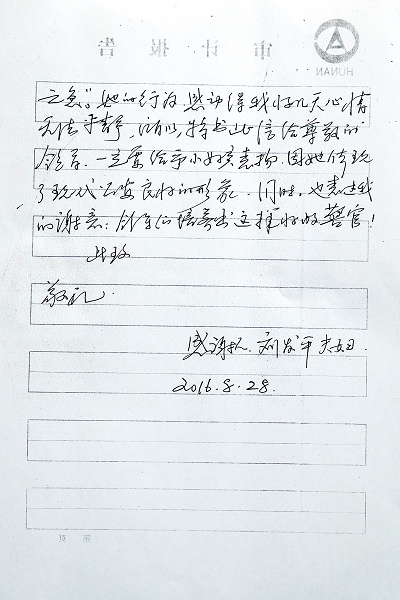 审计报告
HUNAN
之急。她的行为,感动得我好几天心情
无法平静,所以,特书此信给尊敬的
领导,一定要给予小 表扬,因她体现
了现代公安良好的形象。同时,也表达我
的谢意:领导们培养出这样好的警官!
此致
敬礼.
感谢人.刘发平夫妇.
2016.8.28.